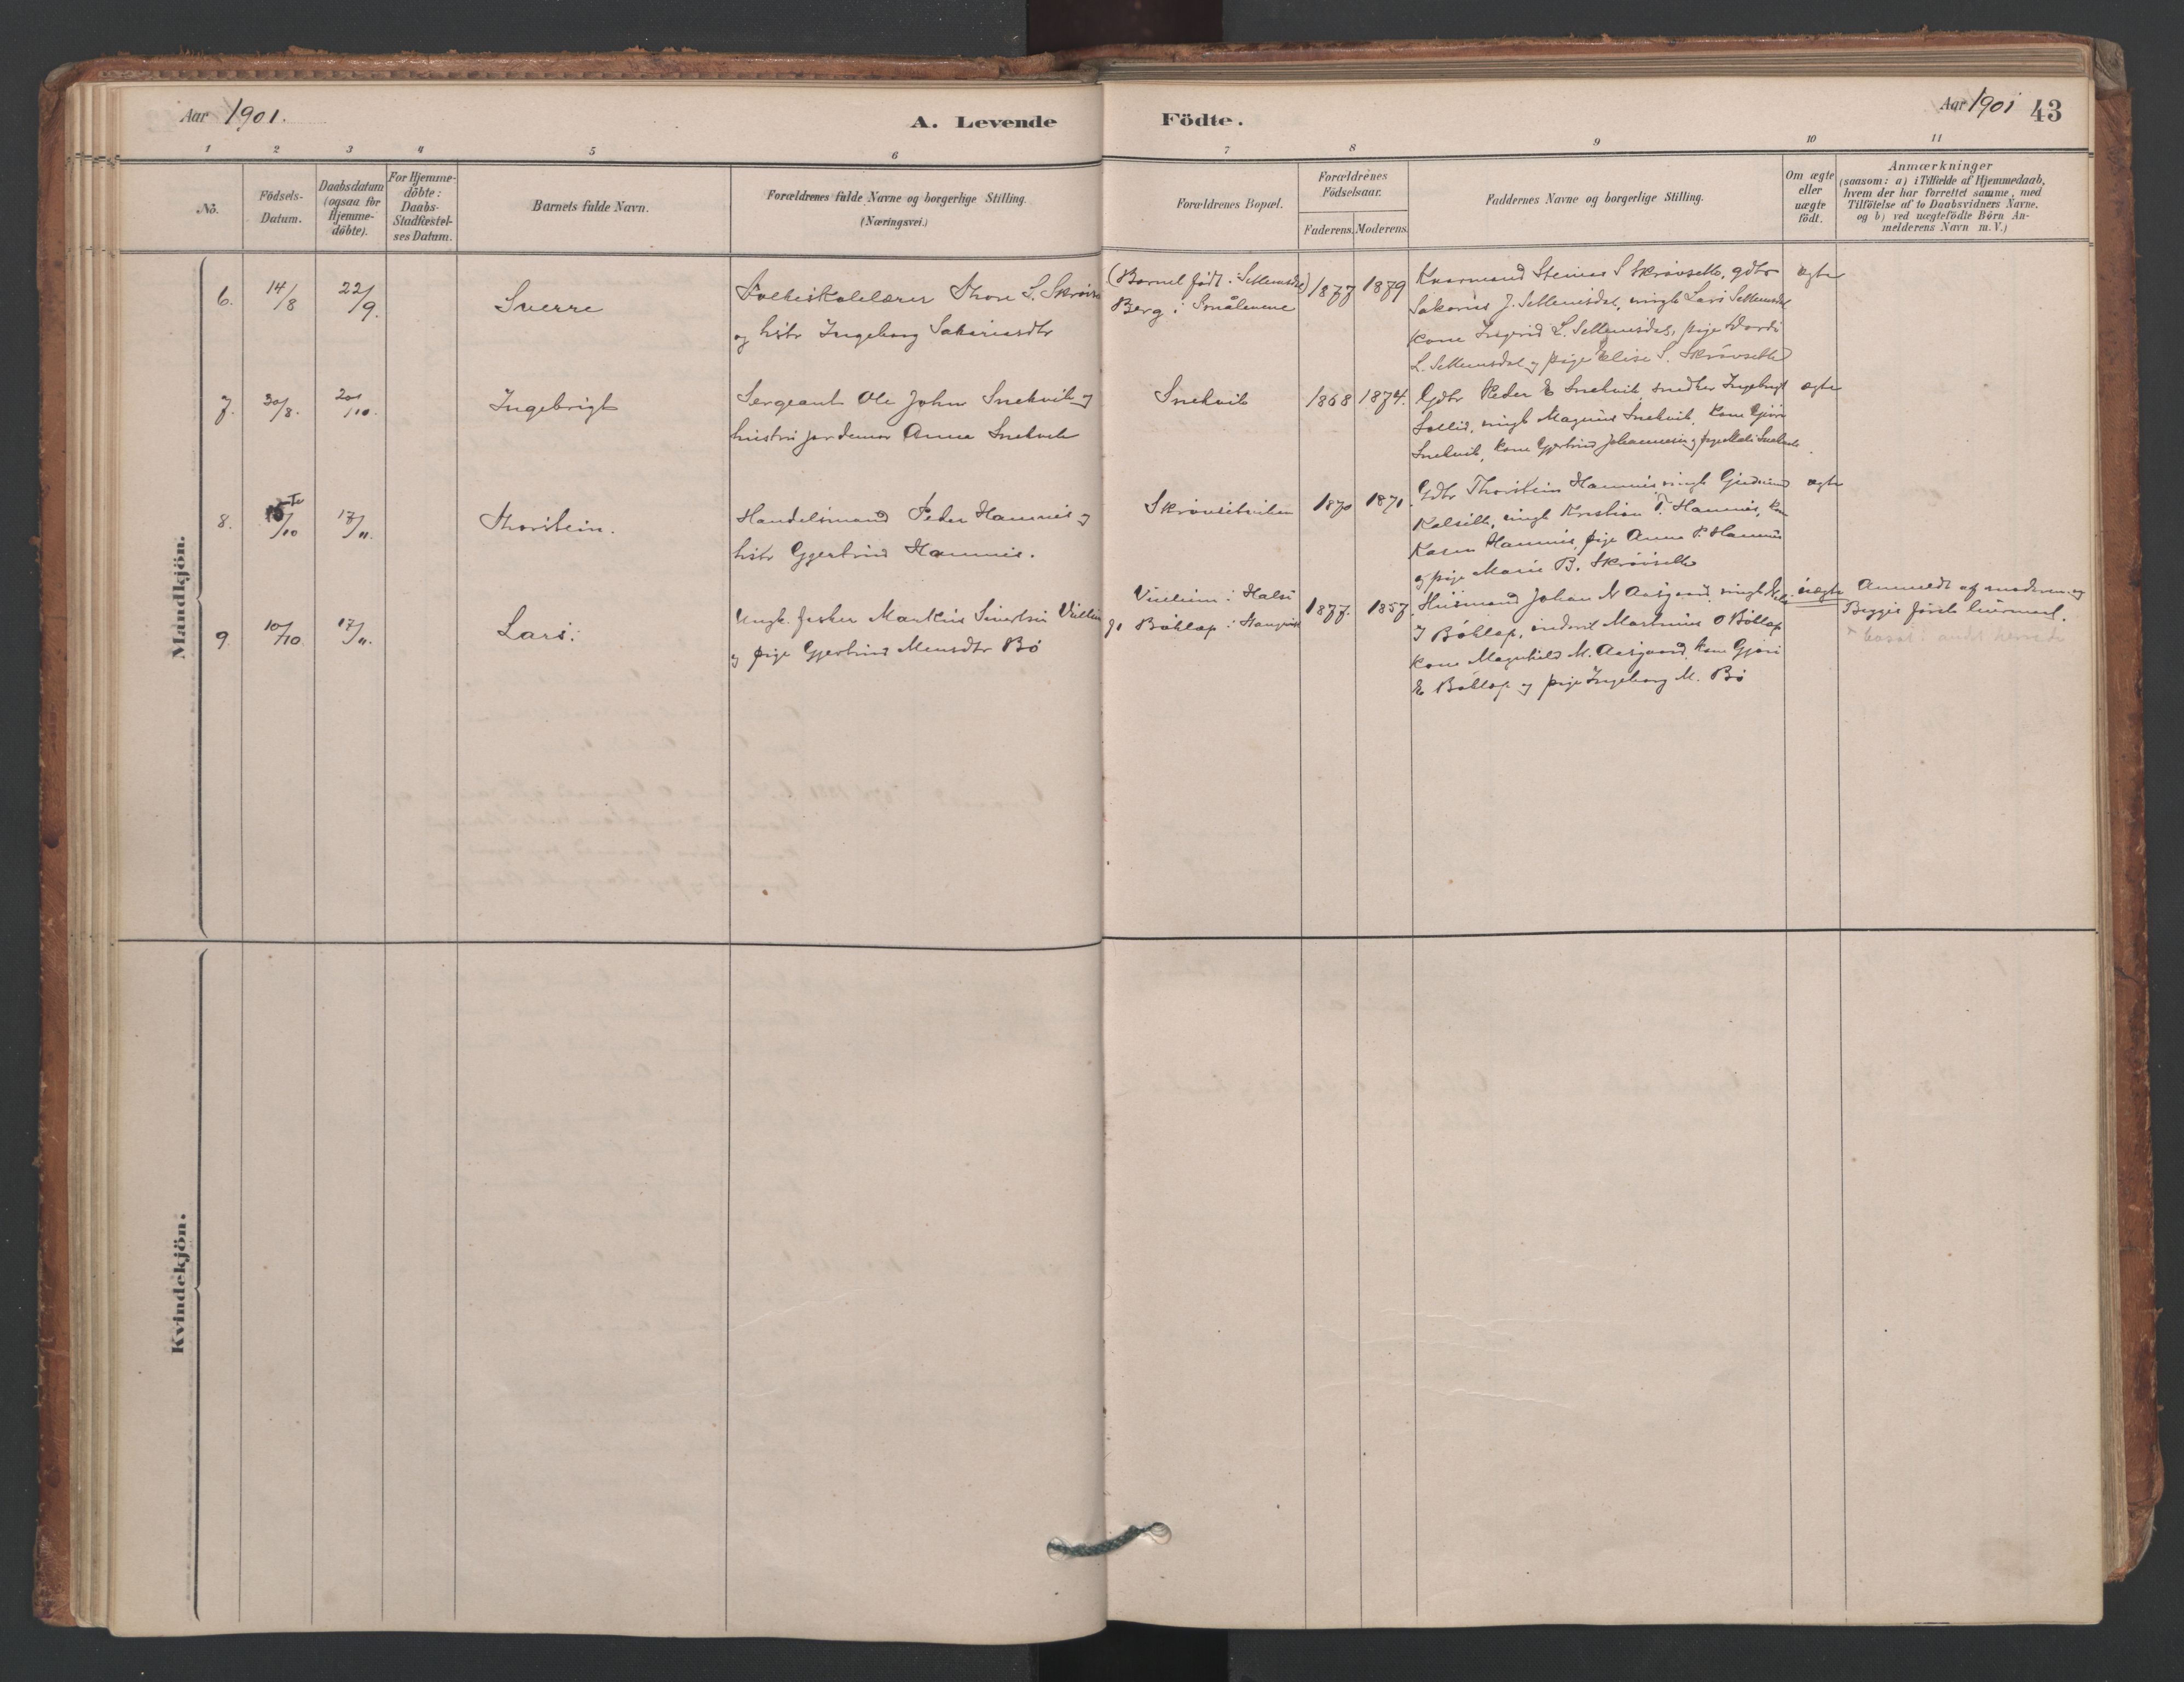 Aar 1901.
A. Levende
Födte.
Aar 1901 43
1 2 3 4 5 6 7 8 9 10 11
No.
Födsels-Datum.
Daabsdatum (ogsaa for Hjemme-döbte).
For Hjemme-döbte: Daabs-Stadfæstel-ses Datum.
Barnets fulde Navn.
Forældrenes fulde Navne og borgerlige Stilling.
(Næringsvei.)
Forældrenes Bopæl.
Forældrenes Födselsaar.
Faderens. Moderens.
Faddernes Navne og borgerlige Stilling.
Om ægte eller uægte födt.
Anmærkninger
(saasom: a) i Tilfælde af Hjemmedaab,
hvem der har forrettet samme, med
Tilföielse af to Daabsvidners Navne.
og b) ved uægtefödte Börn An-
melderens Navn m. V.)
Mandkjön.
6. 14/8 22/9. Sverre
Folkeskolelærer Thore S. Skrövs
og hstr Ingeborg Sakariasdtr
(Barnet født i Settemsdal)
Berg i Smålenene
1877 1879
Steinar S Skrövseth, gdbr
Sakarias J. Settemsdal, ungk Lars Settemsdal
Kone Ingrid L. Settemsdal, pige Dordi
L. Settemsdal og pige Elise S. Skrövseth
ægte
7. 30/8. 20/10. Ingebrigt
Sergeant Ole John Snekvik og
hustru jordemor Anne Snekvik
Snekvik
1868 1874.
Gdbr Peder E Snekvik, snedker Ingebrigt
Sollid, ungk Magnus Snekvik, Kone Gjöri
Snekvik, Kone Gjertrud Johannesen og pige Snekvik
ægte
8. 15/10 17/11. Thorstein.
Handelsmand Peder Hamnes og
hstr Gjertrud Hamnes.
1870 1871.
Gdbr Thorstein Hamnes, ungk Gudmund
Kalseth, ungk Kristian T. Hamnes, kone
Karen Hamnes, pige Anne P. Hamnes
og pige Marie B. Skrövseth
ægte
9. 10/10. 17/11. Lars.
Ungk. fisker Martinus Sivertsen
og pige Gjertrud Monsdtr Bö
i Halse
og Böklep i
1877. 1857.
Husmand Johan N Aasgaard, ungk
J Böklep, inderst Martinus O Böklep
Kone Magnhild M. Aasgaard, Kone Gjöri
E Böklep og pige Ingeborg M. Bö
uægte
Anmeldt af moderen og
Begges første leiermaal.
Kvindekjön.